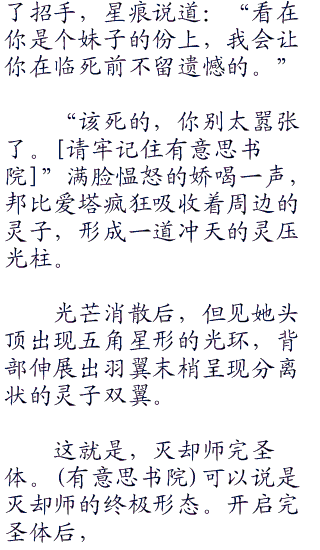 了招手，星痕说道：“看在
你是个妹子的份上，我会让
你在临死前不留遗憾的。”
“该死的，你别太嚣张
了。[请牢记住有意思书
院]”满脸愠怒的娇喝一声，
邦比爱塔疯狂吸收着周边的
灵子，形成一道冲天的灵压
光柱。
光芒消散后，但见她头
顶出现五角星形的光环，背
部伸展出羽翼末梢呈现分离
状的灵子双翼。
这就是，灭却师完圣
体。(有意思书院)可以说是
灭却师的终极形态。开启完
圣体后，